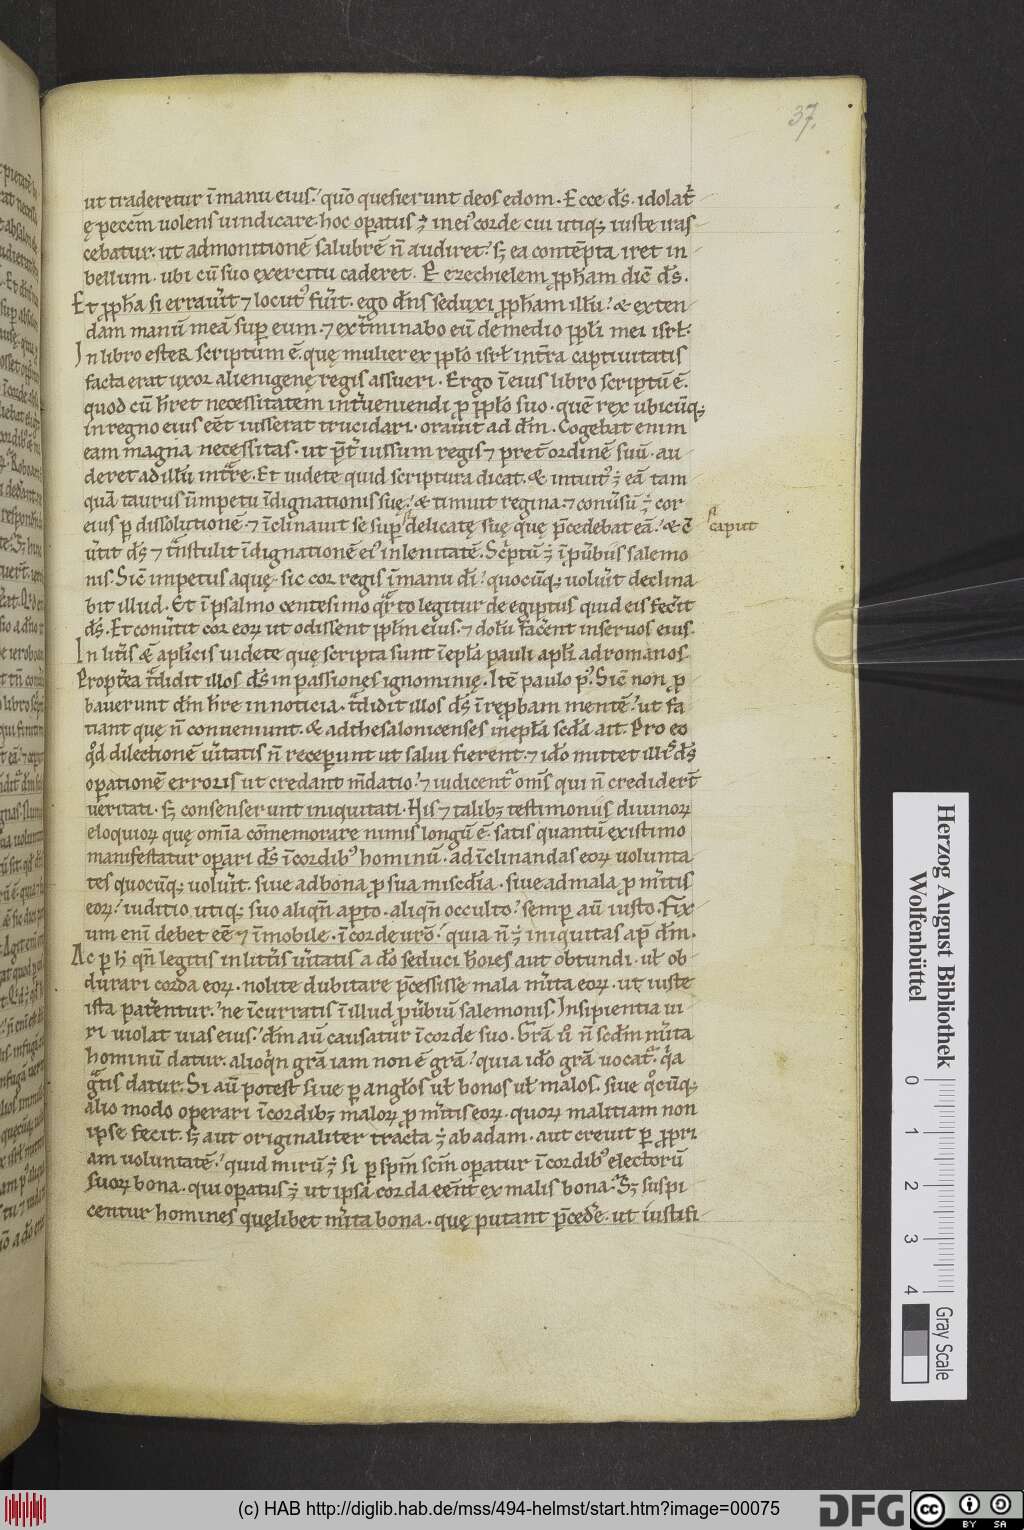 37.
ut traderetur ī manu eius. quō quesierunt deos edom. Ecce d̄s. idolat̄
ę pecc̄m uolens uindicare. hoc opatus ē in ei' corde cui utiq; iuste iras
cebatur. ut admonitionē salubrē n̄ audiret. s; ea contēpta iret in
bellum. ubi cū suo exercitu caderet. P ezechielem ꝓph̄am dic̄ d̄s.
Et ꝓph̄a si errauit ⁊ locut' fuīt. ego dn̄s seduxi ꝓph̄am illū. & exten
dam manū meā sup eum. ⁊ extminabo eū de medio ppl̄i mei isrl̄.
In libro ester scriptum ē. quę mulier ex ppl̄o isrl̄ int̄ra captiuitatis
facta erat uxor alienigenę regis assueri. Ergo ī eius libro scriptū ē.
quod cū h̄ret necessitatem int̄ueniendi ꝓ ppl̄o suo. quē rex ubicūq;
in regno eius eēt iusserat trucidari. orauit ad dm̄. Cogebat enim
eam magna necessitas. ut pt̄ iussum regis ⁊ pret ordinē suū. au
deret ad illū int̄re. Et uidete quid scriptura dicat. & intuit' ē eā tam
quā taurus īimpetu īdignationis suę. & timuit regina. ⁊ conūsū ē cor
eius ꝑ dissolutionē. ⁊ īclinauit se sup delicatę suę quę p̄cedebat eā. & c̄
caput
ūtit d̄s ⁊ tn̄stulit īdignationē ei' in lenitatē. Sc̄ptū ē ī pūbiis salemo
nis. Sic̄ impetus aquę. sic cor regis ī manu dī. quocūq; uoluīt declina
bit illud. Et ī psalmo centesimo qrto legitur de egiptus quid eis fecit
d̄s. Et conūtit cor eoꝝ ut odissent ppl̄m eius. ⁊ dolū facēnt in seruos eius.
In litīs & apl̄icis uidete quę scripta sunt ī epl̄a pauli apl̄i ad romanos.
Propt̄ea t̄didit illos d̄s in passiones ignominię. Itē paulo p'. Sic̄ non ꝓ
bauerunt dm̄ h̄re in noticia. t̄didit illos d̄s ī reꝓbam mentē. ut fa
tiant quę n̄ conueniunt. & ad thesalonicenses in epl̄a scd̄a ait. Pro eo
qd dilectionē ūitatis n̄ receperunt ut salui fierent. ⁊ idō mittet illis d̄s
operationē erroris ut credant m̄datio. ⁊ iudicent' om̄s qui n̄ credidert̄
ueritati. s; consenserunt iniquitati. His ⁊ talib; testimoniis diuinoꝝ
eloquioꝝ quę omīa cōmemorare nimis longū ē. satis quantū existimo
manifestatur opari d̄s ī cordib' hominū. ad īclinandas eoꝝ uolunta
tes quocūq; uoluīt. siue ad bona ꝓ sua misc̄dia. siue ad mala ꝓ m̄itis
eoꝝ. iuditio utiq; suo aliqn̄ apto. aliqn̄ occulto. semp aū iusto. Fix
um enī debet eē ⁊ īmobile. ī corde urō. quia n̄ ē iniquitas ap̄ dm̄.
Ac p h qn̄ legitis in litīs ūitatis a dō seduci hōies aut obtundi. ul̄ ob
durari corda eoꝝ. nolite dubitare p̄cessisse mala m̄ita eoꝝ. ut iuste
ista patērentur. ne īcurratis ī illud pūbiū salemonis. Insipientia ui
ri uiolat uias eius. dm̄ aū causatur ī corde suo. Grā ū n̄ scdm̄ m̄ita
hominū datur. alioqn̄ grā iam non ē grā. quia idō grā uocat̄. qa
gtis datur. Si aū potest siue ꝑ anglos ul̄ bonos ul̄ malos. siue qocūq;
alio modo operari ī cordib; maloꝝ ꝓ m̄itis eoꝝ. quoꝝ malitiam non
ipse fecit. s; aut originaliter tracta ē ab adam. aut creuit ꝑ ꝓpri
am uoluntatē. quid mirū ē si ꝑ spm̄ scm̄ opatur ī cordib' electorū
suoꝝ bona. qui opatus ē ut ipsa corda eēnt ex malis bona. S; suspi
centur homines quęlibet m̄ita bona. quę putant p̄cedēe. ut iustifi
Herzog August Bibliothek
Wolfenbüttel
0 1 2 3 4
Gray Scale
(c) HAB http://diglib.hab.de/mss/494-helmst/start.htm?image=00075
DFG
cc BY SA